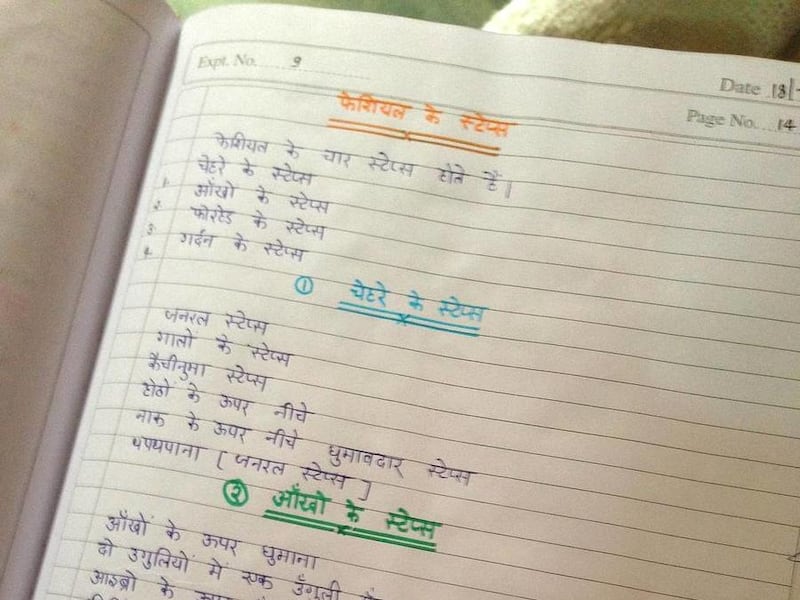 Expt. No. 9
Date 13/
Page No. 14
फेशियल के स्टेप्स
फेशियल के चार स्टेप्स होते हैं।
1. चेहरे के स्टेप्स
2. आँखो के स्टेप्स
3. फोरहेड के स्टेप्स
4. गर्दन के स्टेप्स
① चेहरे के स्टेप्स
जनरल स्टेप्स
गालों के स्टेप्स
कैचीनुमा स्टेप्स
होठों के ऊपर नीचे
नाक के ऊपर नीचे घुमावदार स्टेप्स
थपथपाना [जनरल स्टेप्स]
② आँखो के स्टेप्स
आँखों के ऊपर घुमाना
दो उगुलियों में एक उँगुली
आइब्रो के ऊपर